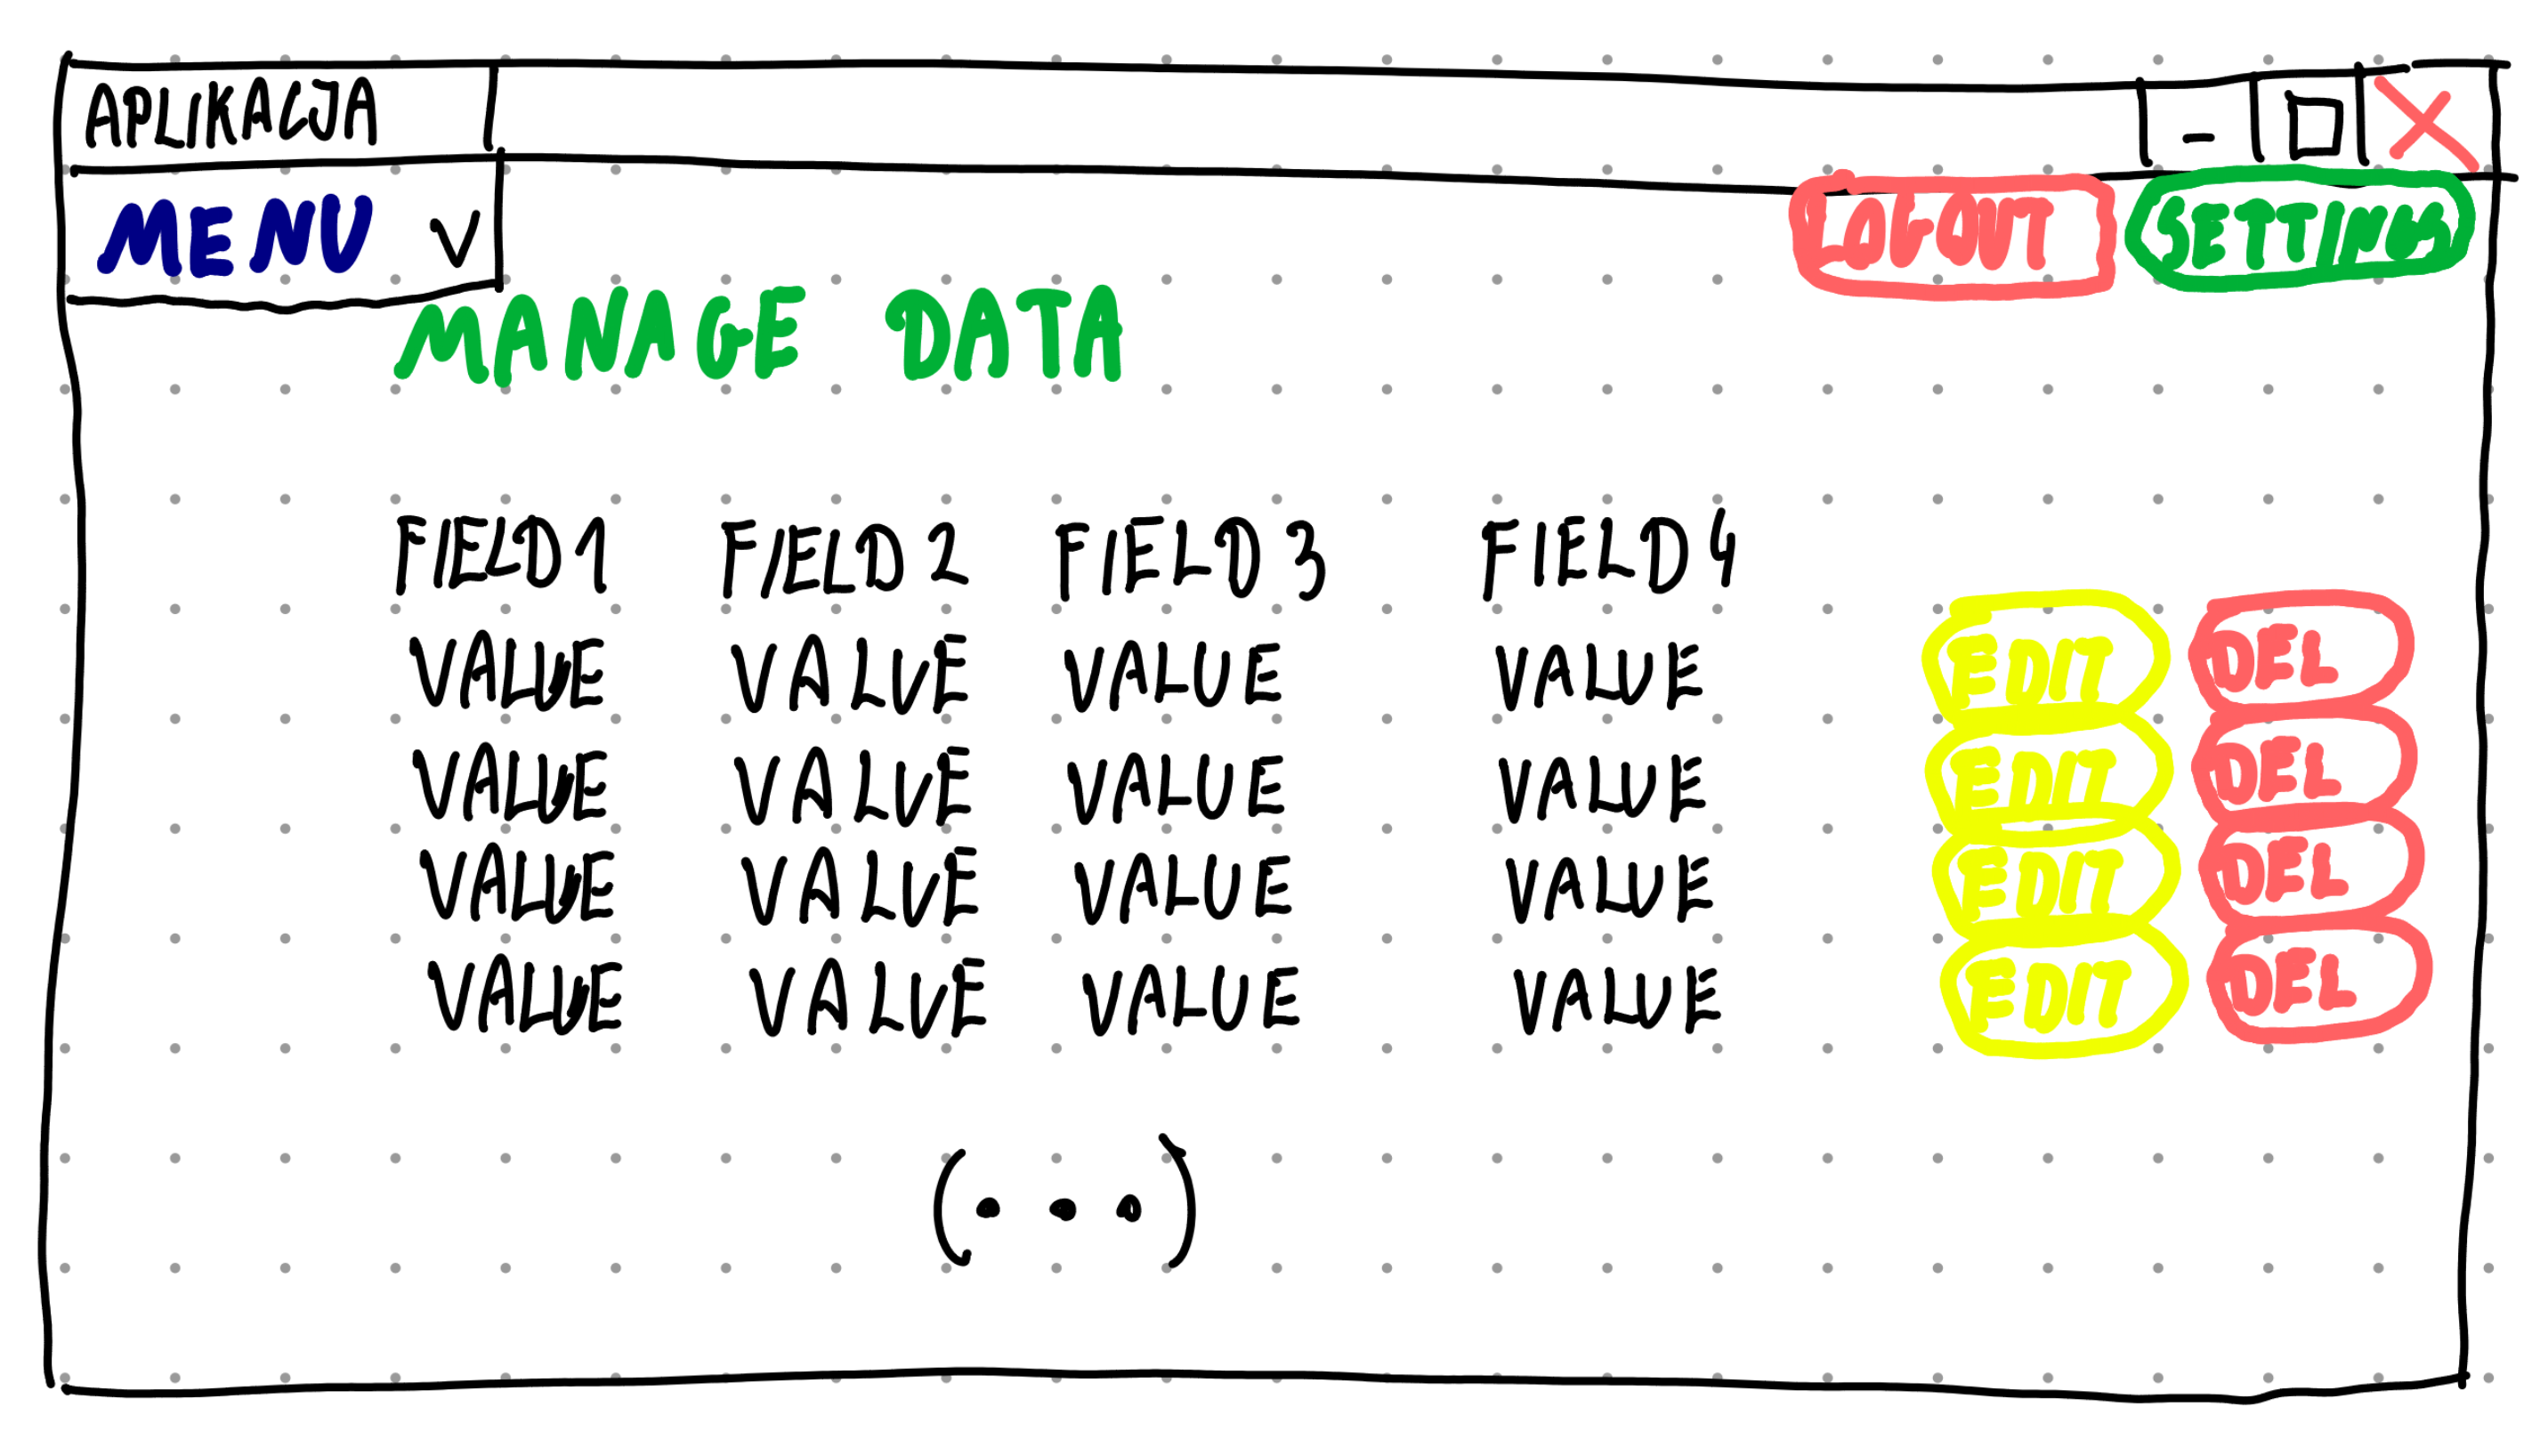 APLIKACJA - X
MENU V LOGOUT SETTINGS
MANAGE DATA
FIELD1 FIELD2 FIELD3 FIELD4
VALUE VALUE VALUE VALUE EDIT DEL
VALUE VALUE VALUE VALUE EDIT DEL
VALUE VALUE VALUE VALUE EDIT DEL
VALUE VALUE VALUE VALUE EDIT DEL
(...)